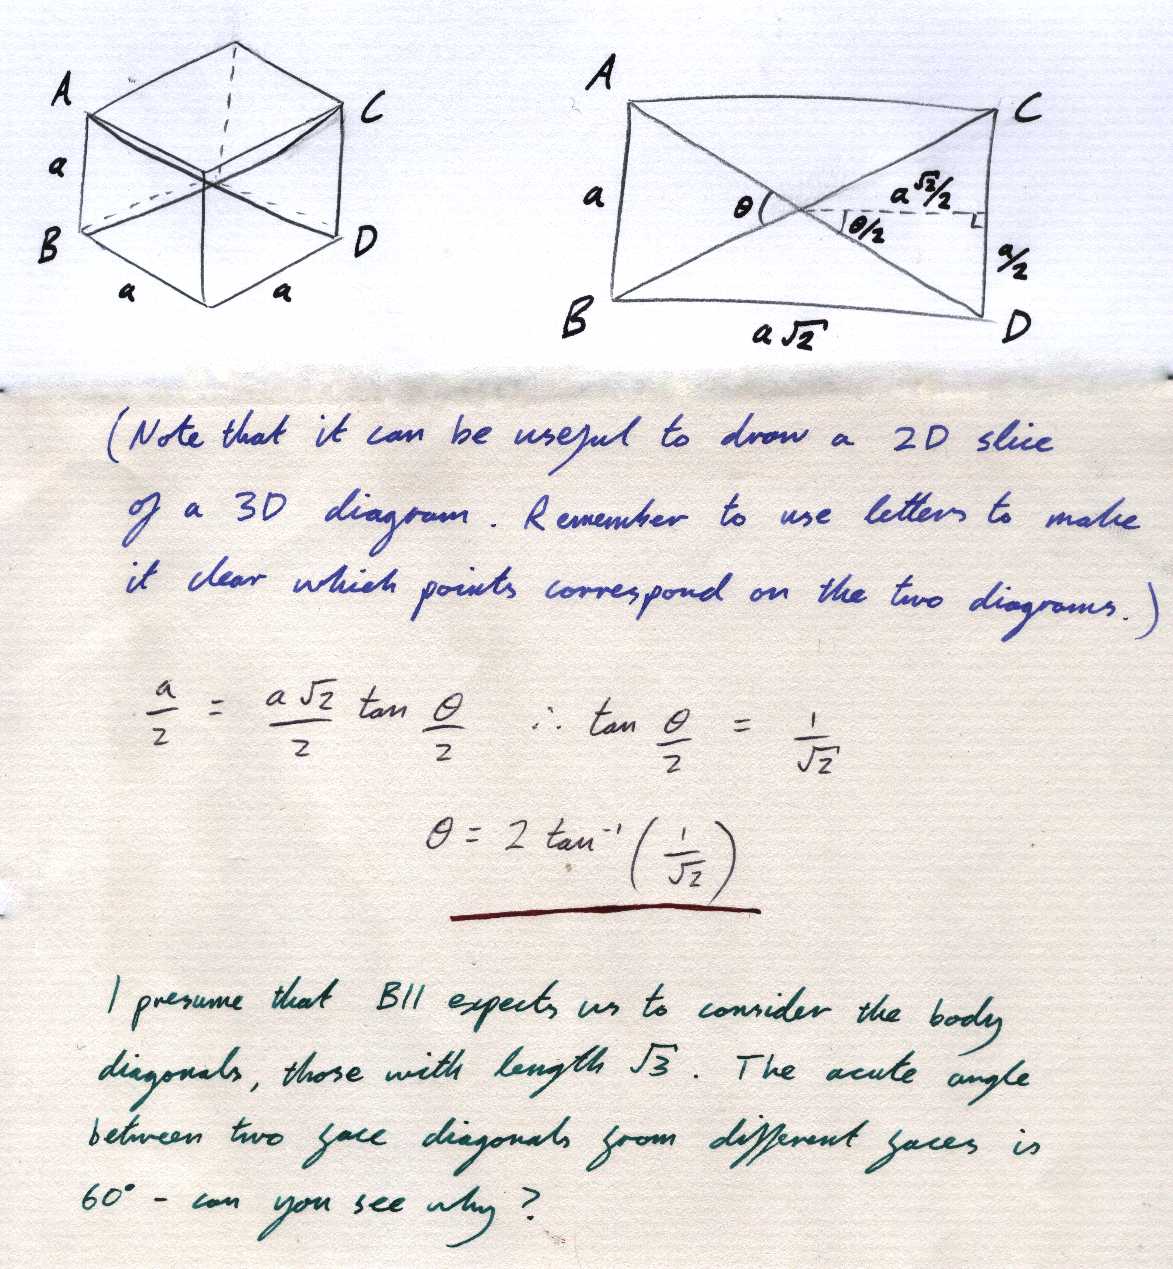 A
C
a
B
D
a
a
A
C
a
θ
a√2/2
θ/2
a/2
B
D
a√2
(Note that it can be useful to draw a 2D slice
of a 3D diagram. Remember to use letters to make
it clear which points correspond on the two diagrams.)
a/2 = a√2/2 tan θ/2 ∴ tan θ/2 = 1/√2
θ = 2 tan⁻¹ (1/√2)
I presume that B11 expects us to consider the body
diagonals, those with length √3. The acute angle
between two face diagonals from different faces is
60° - can you see why?